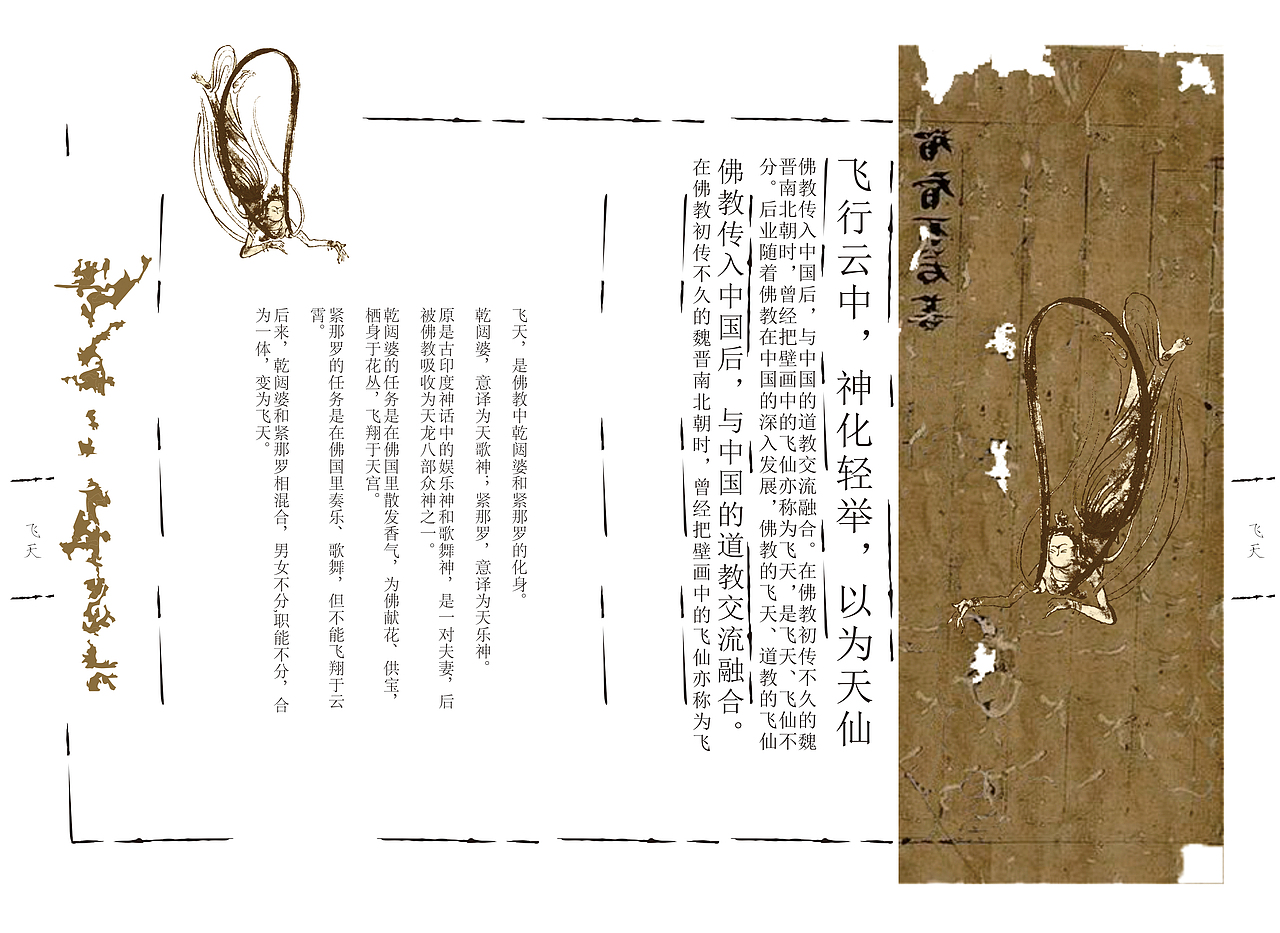 飞天
飞行云中，神化轻举，以为天仙
佛教传入中国后，与中国的道教交流融合。在佛教初传不久的魏
晋南北朝时，曾经把壁画中的飞仙亦称为飞天，是飞天、飞仙不
分。后业随着佛教在中国的深入发展，佛教的飞天、道教的飞仙
佛教传入中国后，与中国的道教交流融合。
在佛教初传不久的魏晋南北朝时，曾经把壁画中的飞仙亦称为飞
飞天，是佛教中乾闼婆和紧那罗的化身。
乾闼婆，意译为天歌神；紧那罗，意译为天乐神。
原是古印度神话中的娱乐神和歌舞神，是一对夫妻，后
被佛教吸收为天龙八部众神之一。
乾闼婆的任务是在佛国里散发香气，为佛献花、供宝，
栖身于花丛，飞翔于天宫。
紧那罗的任务是在佛国里奏乐、歌舞，但不能飞翔于云
霄。
后来，乾闼婆和紧那罗相混合，男女不分职能不分，合
为一体，变为飞天。
飞天